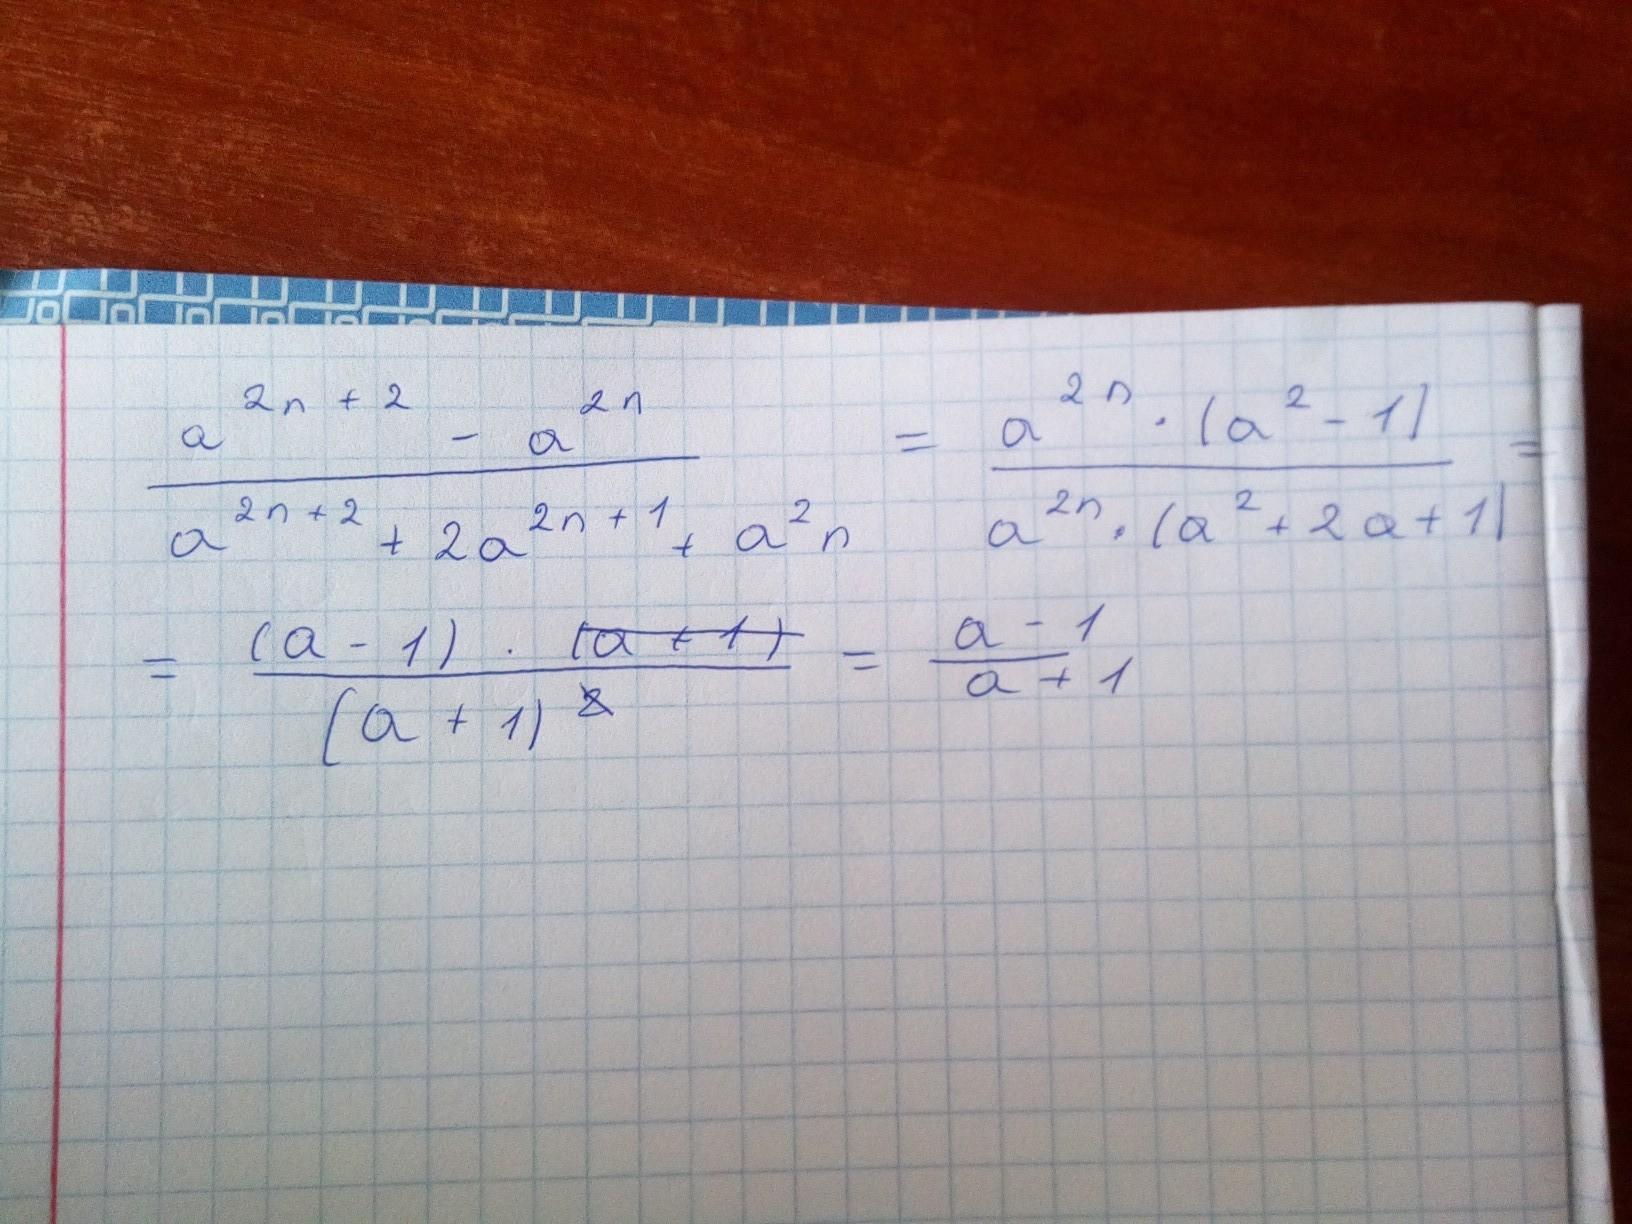 (a^(2n+2) - a^(2n)) / (a^(2n+2) + 2a^(2n+1) + a^2 n) = (a^(2n) · (a^2 - 1)) / (a^(2n) · (a^2 + 2a + 1)) =
= ((a - 1) · (a + 1)) / (a + 1)^2 = (a - 1) / (a + 1)